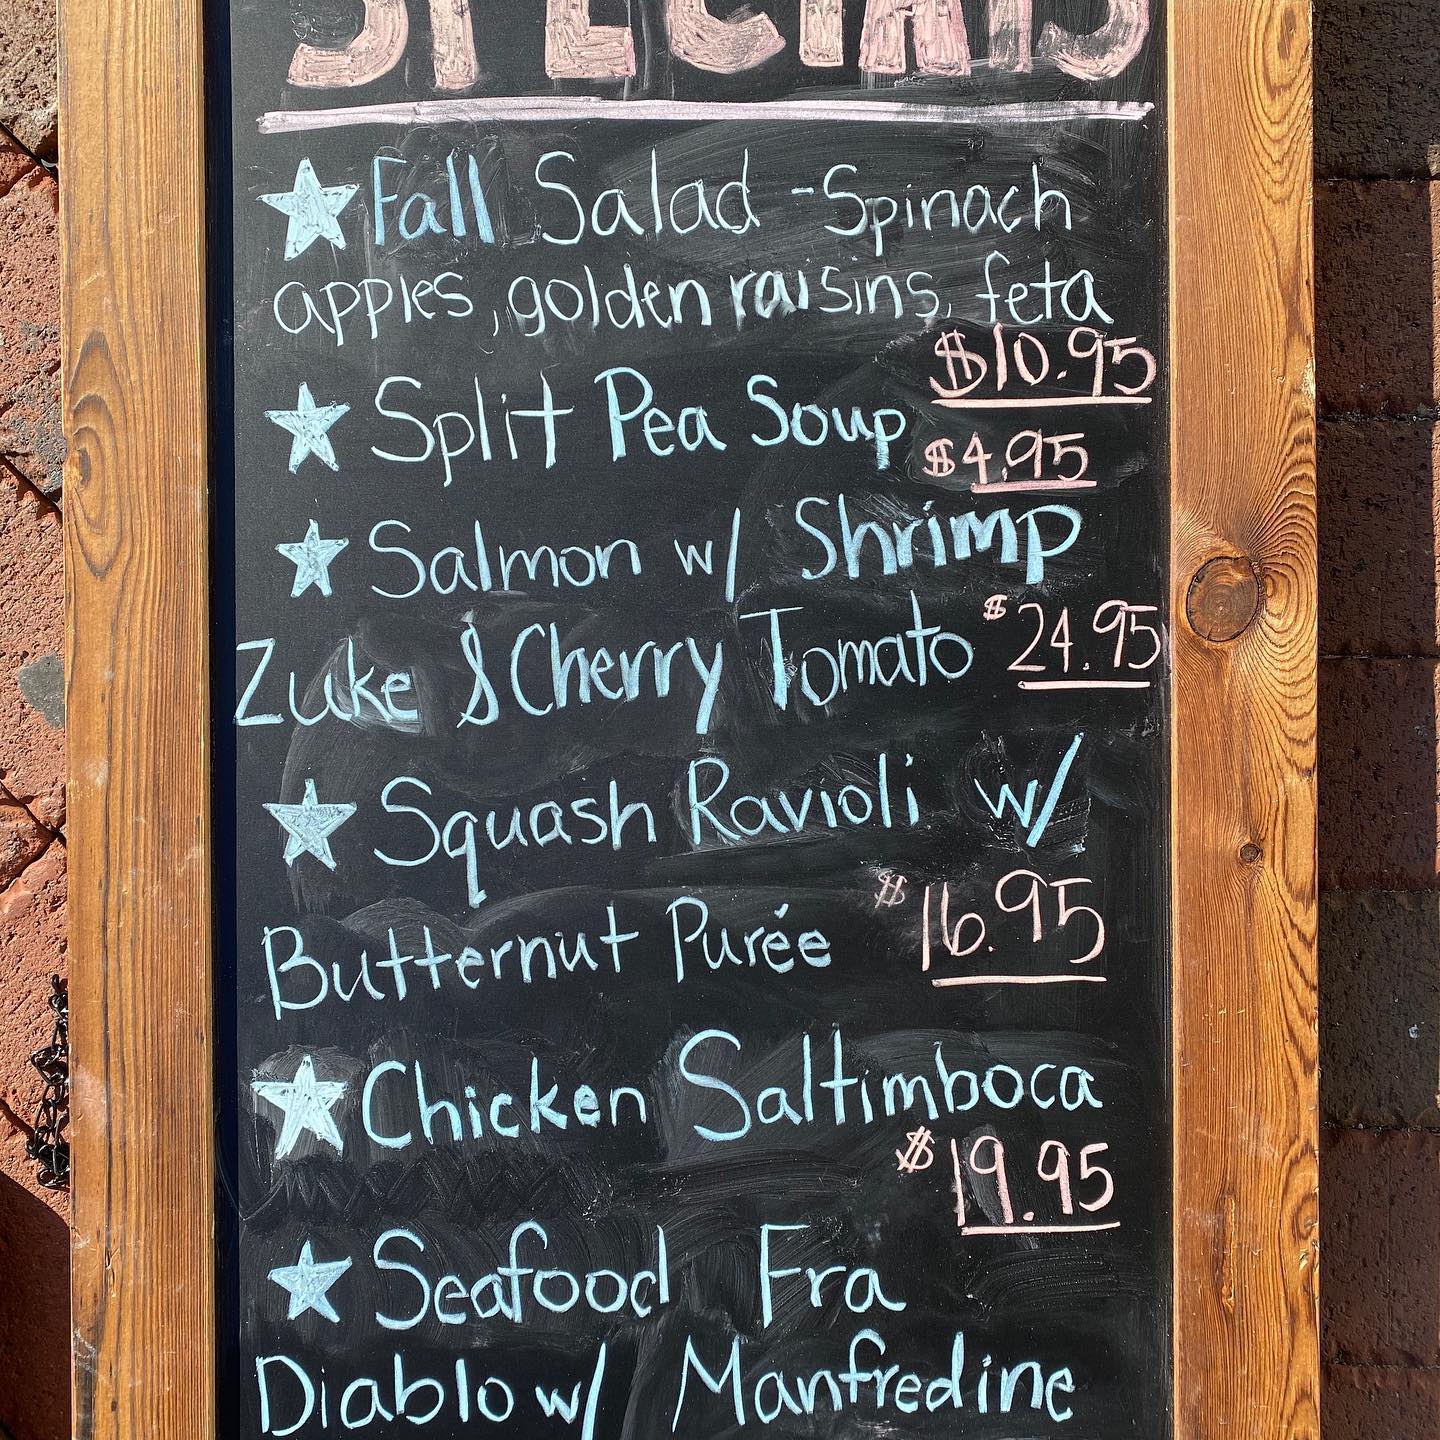 SPECIALS
Fall Salad - Spinach
apples, golden raisins, feta
$10.95
Split Pea Soup $4.95
Salmon w/ Shrimp
Zuke & Cherry Tomato $24.95
Squash Ravioli w/
Butternut Purée $16.95
Chicken Saltimboca
$19.95
Seafood Fra
Diablo w/ Manfredine